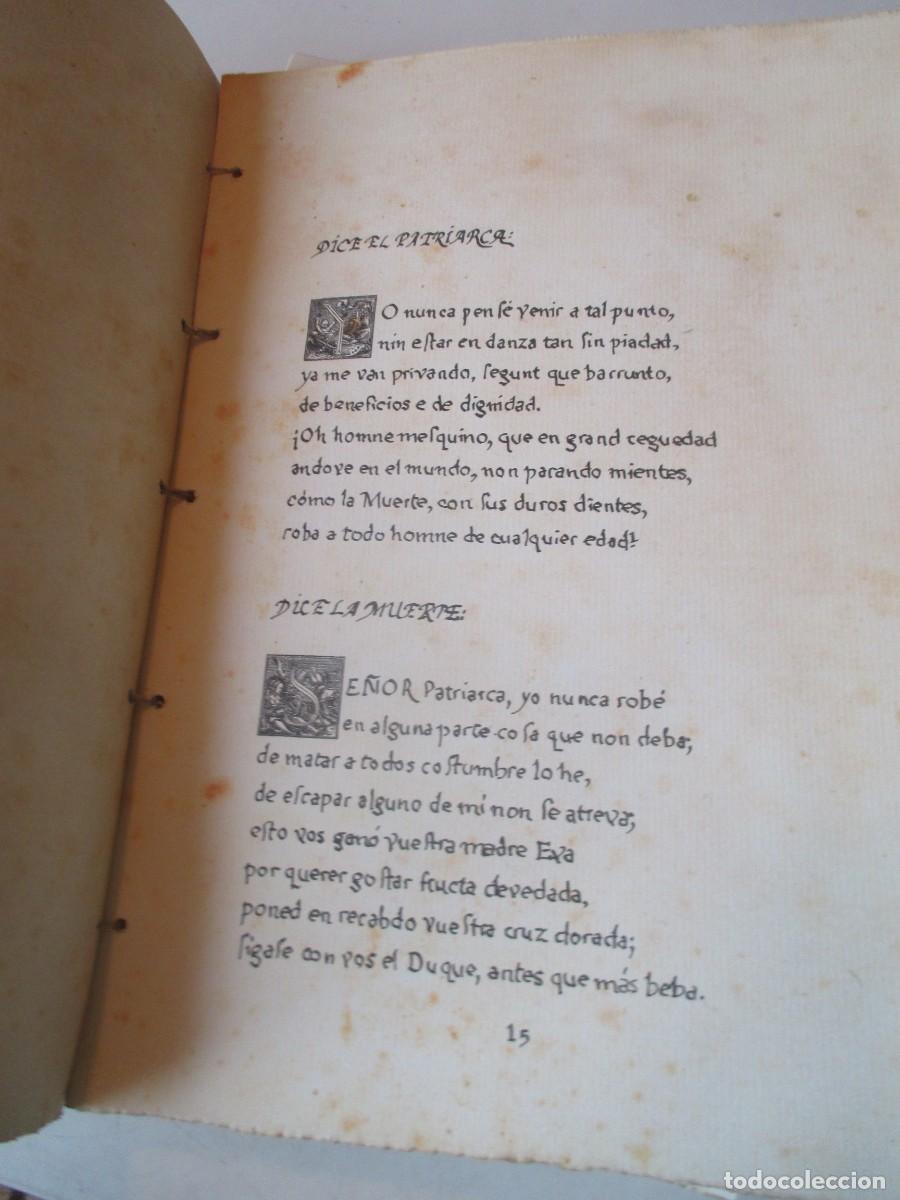 DICE EL PATRIARCA:
YO nunca penſé venir a tal punto,
nin eſtar en danza tan ſin piadad,
ya me van privando, ſegunt que barrunto,
de beneficios e de dignidad.
¡Oh homne meſquino, que en grand ceguedad
andove en el mundo, non parando mientes,
cómo la Muerte, con ſus duros dientes,
roba a todo homne de cualquier edad!
DICE LA MUERTE:
SEÑOR Patriarca, yo nunca robé
en alguna parte coſa que non deba,
de matar a todos coſtumbre lo he,
de eſcapar alguno de mí non ſe atreva,
eſto vos ganó vueſtra madre Eva
por querer goſtar fructa devedada,
poned en recabdo vueſtra cruz dorada;
ſigaſe con vos el Duque, antes que más beba.
15
todocoleccion